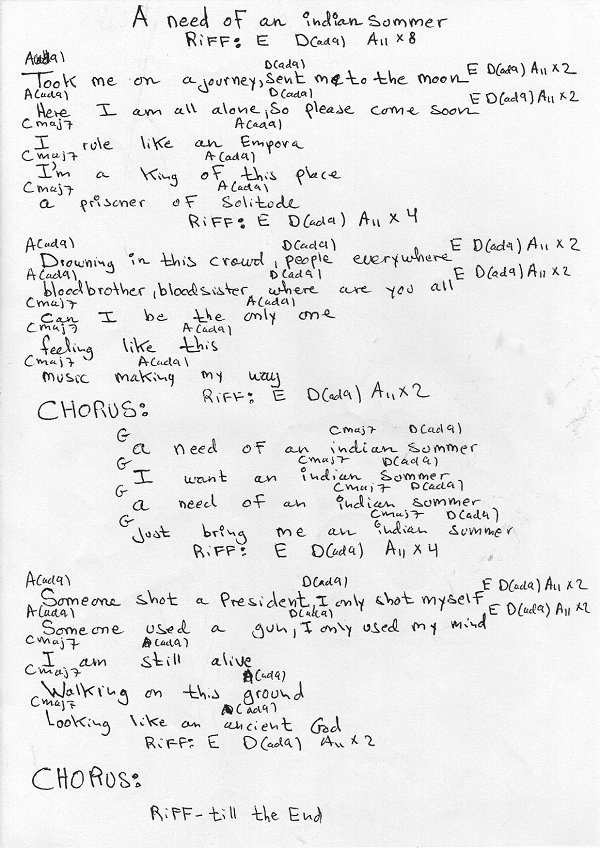 A need of an indian summer
RiFF: E D(ad9) A11 x 8
A(ad9) D(ad9)
Took me on a journey, sent me to the moon E D(ad9) A11 x 2
A(ad9) D(ad9)
Here I am all alone, So please come soon E D(ad9) A11 x 2
Cmaj7 A(ad9)
I rule like an Empora
Cmaj7 A(ad9)
I'm a king of this place
Cmaj7 A(ad9)
a prisoner of Solitude
RiFF: E D(ad9) A11 x 4
A(ad9) D(ad9) E D(ad9) A11 x 2
Drowning in this crowd, people everywhere
A(ad9) D(ad9) E D(ad9) A11 x 2
bloodbrother, bloodsister, where are you all
Cmaj7 A(ad9)
Can I be the only one
Cmaj7 A(ad9)
feeling like this
Cmaj7 A(ad9)
music making my way
RiFF: E D(ad9) A11 x 2
CHORUS:
G Cmaj7 D(ad9)
a need of an indian summer
G Cmaj7 D(ad9)
I want an indian summer
G Cmaj7 D(ad9)
a need of an indian summer
G Cmaj7 D(ad9)
just bring me an indian summer
RiFF: E D(ad9) A11 x 4
A(ad9) D(ad9) E D(ad9) A11 x 2
Someone shot a President, I only shot myself
A(ad9) D(ad9) E D(ad9) A11 x 2
Someone used a gun, I only used my mind
Cmaj7 A(ad9)
I am still alive
Cmaj7 A(ad9)
Walking on this ground
Cmaj7 A(ad9)
Looking like an ancient God
RiFF: E D(ad9) A11 x 2
CHORUS:
RiFF - till the End